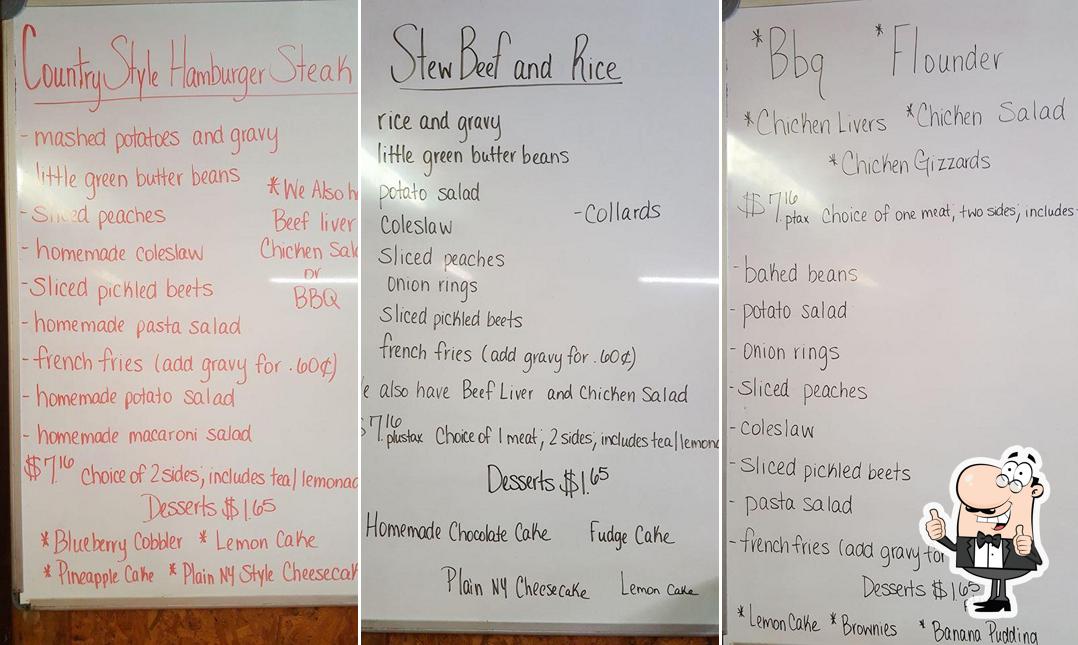 Country Style Hamburger Steak
- mashed potatoes and gravy
little green butter beans
- sliced peaches
- homemade coleslaw
- sliced pickled beets
- homemade pasta salad
- french fries (add gravy for .60¢)
- homemade potato salad
- homemade macaroni salad
*We Also h
Beef liver
Chicken Sala
or
BBQ
$7.16 Choice of 2 sides; includes tea/lemonad
Desserts $1.65
* Blueberry Cobbler * Lemon Cake
* Pineapple Cake * Plain NY Style Cheesecak
Stew Beef and Rice
rice and gravy
little green butter beans
potato salad
Coleslaw
-collards
sliced peaches
onion rings
sliced pickled beets
french fries (add gravy for .60¢)
e also have Beef Liver and Chicken Salad
$7.16 plustax Choice of 1 meat; 2 sides; includes tea/lemona
Desserts $1.65
Homemade Chocolate Cake Fudge Cake
Plain NY Cheesecake Lemon Cake
*Bbq *Flounder
*Chicken Livers *Chicken Salad
*Chicken Gizzards
$7.16 ptax Choice of one meat; two sides; includes
- baked beans
- potato salad
- onion rings
- sliced peaches
- coleslaw
- sliced pickled beets
- pasta salad
- french fries (add gravy for
Desserts $1.65
*Lemon Cake *Brownies *Banana Pudding